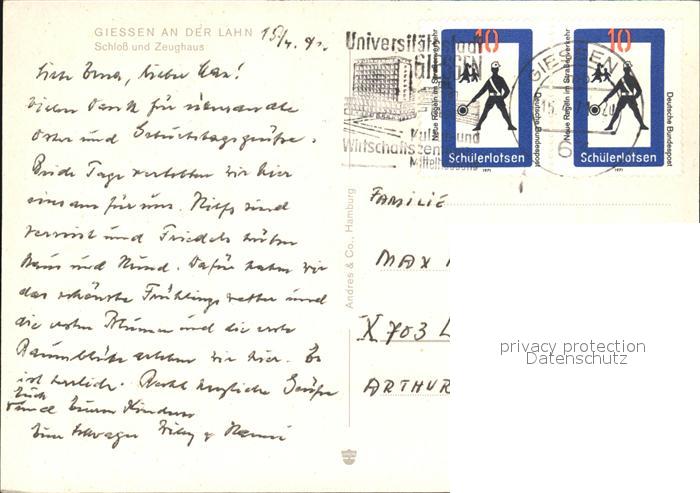 GIESSEN AN DER LAHN
Schloß und Zeughaus
Vielen Dank für
Oster und Geburtstagsgrüße.
Beide Tage verlebten wir hier
eins am für uns. Willy sind
verreist und Friedels hüten
Haus und Hund. Dafür haben wir
das schönste Frühlingswetter und
die ersten Blumen und die erste
Baumblüte erleben wir hier. Es
ist herrlich. Recht herzliche Grüße
Euch
und Euren Kindern
Euer Schwager Willy &
Universitätsstadt
GIESSEN
Kultur und
Wirtschaftszen
Mittelhessens
GIESSEN
6
10
Neue Regeln im Straßenverkehr
Deutsche Bundespost
Schülerlotsen
1971
10
Neue Regeln im Straßenverkehr
Deutsche Bundespost
Schülerlotsen
1971
Andres & Co., Hamburg
FAMILIE
MAX
X 703 L
ARTHUR
privacy protection
Datenschutz